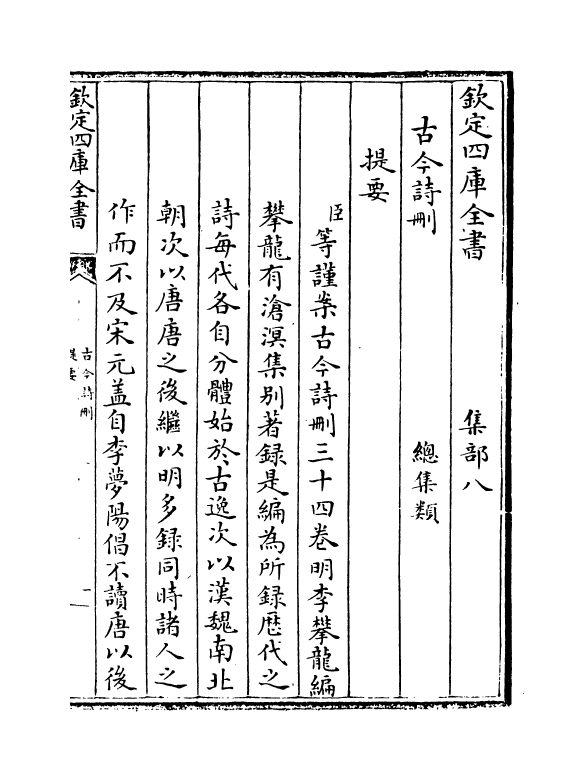 欽定四庫全書　集部八
古今詩刪　總集類
提要
臣等謹案古今詩刪三十四卷明李攀龍編
攀龍有滄溟集別著録是編為所録歴代之
詩每代各自分體始於古逸次以漢魏南北
朝次以唐唐之後繼以明多録同時諸人之
作而不及宋元盖自李夢陽倡不讀唐以後
欽定四庫全書
古今詩刪
提要
一